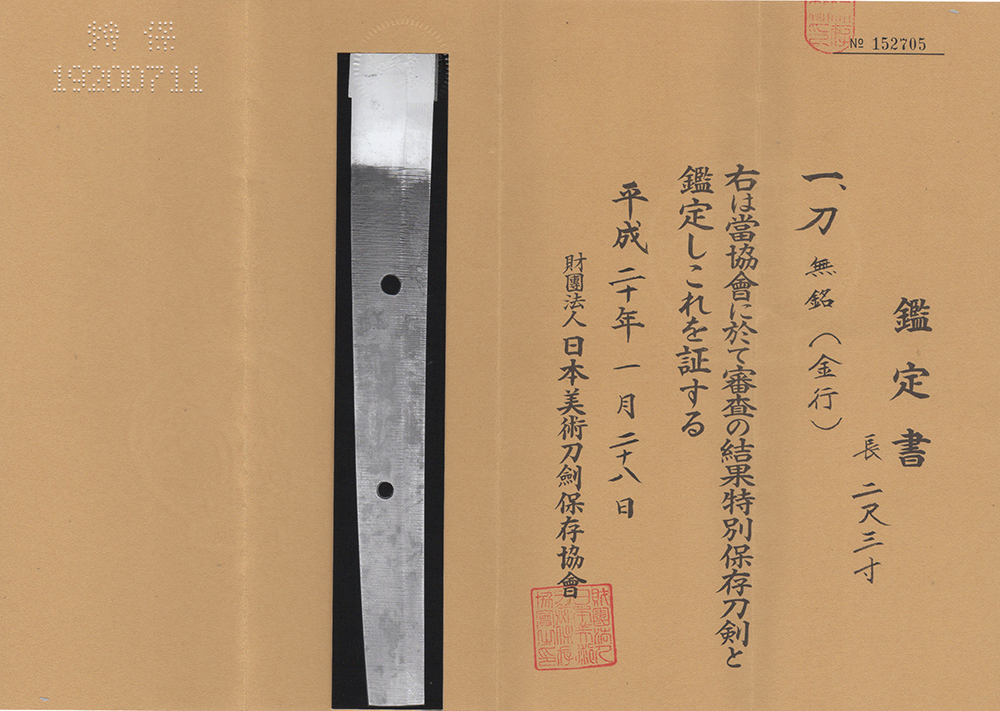 № 152705
鑑定書
一、刀 無銘(金行)
長 二尺三寸
右は當協會に於て審査の結果特別保存刀剣と
鑑定しこれを証する
平成二十年一月二十八日
財團法人日本美術刀劍保存協會
特保
19200711